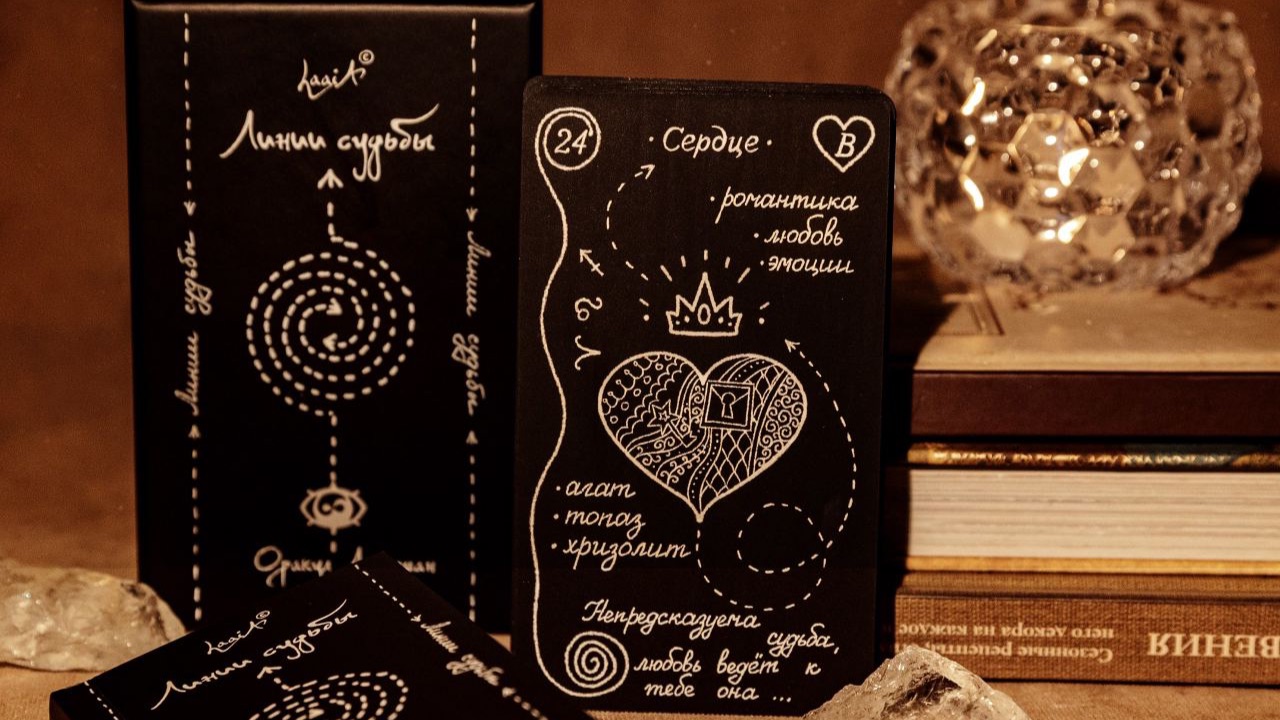 Линии судьбы
Линии судьбы
Линии судьбы
Линии судьбы
Линии судьбы
24
· Сердце ·
В
· романтика
· любовь
· эмоции
· агат
· топаз
· хризолит
Непредсказуема
судьба,
любовь ведёт к
тебе она ...
Линии судьбы
Линии судьбы
Сезонные рецепты
него декора на каждое
ВЕНИЯ